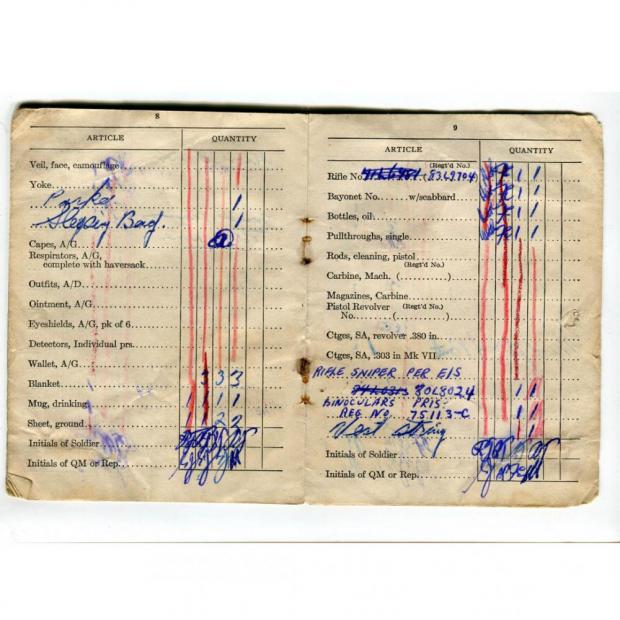 8
ARTICLE QUANTITY
Veil, face, camouflage
Yoke
Parka 1
Sleeping Bag. 1
Capes, A/G
Respirators, A/G,
complete with haversack
Outfits, A/D
Ointment, A/G
Eyeshields, A/G, pk of 6
Detectors, Individual prs.
Wallet, A/G
Blanket 3 3 3
Mug, drinking 1 1 1 1
Sheet, ground 2 2
Initials of Soldier
Initials of QM or Rep.
9
ARTICLE QUANTITY
(Regt'd No.)
Rifle No. (83L9704 1 1
Bayonet No. w/scabbard 1 1
Bottles, oil 1 1
Pullthroughs, single 1 1
Rods, cleaning, pistol
(Regt'd No.)
Carbine, Mach. ( )
Magazines, Carbine
Pistol Revolver (Regt'd No.)
No. ( )
Ctges, SA, revolver .380 in.
Ctges, SA, .303 in Mk VII
RIFLE SNIPER PER EIS
80L8024 1 1
BINOCULARS PRIS.
REG NO. 75113-C 1 1
Vest String 1
Initials of Soldier
Initials of QM or Rep.